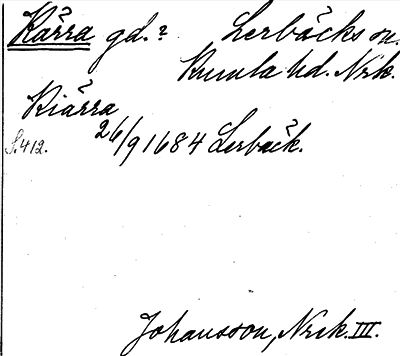 Kärra gd.? Lerbäcks sn.
Kumla hd. Nrk.
Kiärra
S.412. 26/9 1684 Lerbäck.
Johansson, Nrk. III.